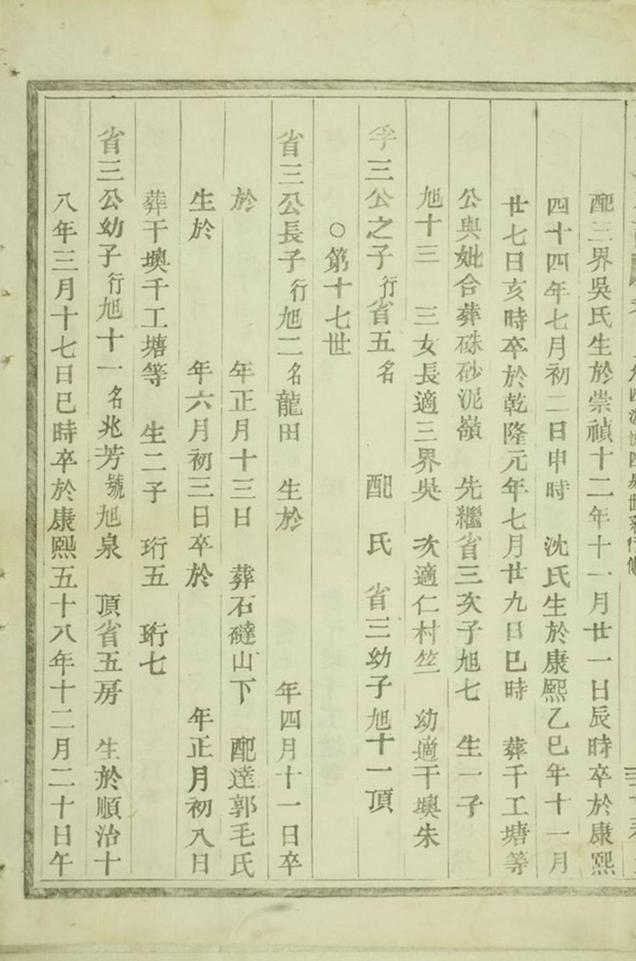 配三界吳氏生於崇禎十二年十一月廿一日辰時卒於康熙
四十四年七月初二日申時　沈氏生於康熙乙巳年十一月
廿七日亥時卒於乾隆元年七月廿九日巳時　葬千工塘等
公與妣合葬硃砂泥嶺　先繼省三次子旭七　生一子
旭十三　三女長適三界吳　次適仁村竺　幼適干墺朱
孚三公之子行省五名　　配　氏　省三幼子旭十一頂
○第十七世
省三公長子行旭二名龍田　生於　　年四月十一日卒
於　　年正月十三日　葬石䃮山下　配逵郭毛氏
生於　　年六月初三日卒於　　年正月初八日
葬干墺千工塘等　生二子　珩五　珩七
省三公幼子行旭十一名兆芳號旭泉　頂省五房　生於順治十
八年三月十七日巳時卒於康熙五十八年十二月二十日午